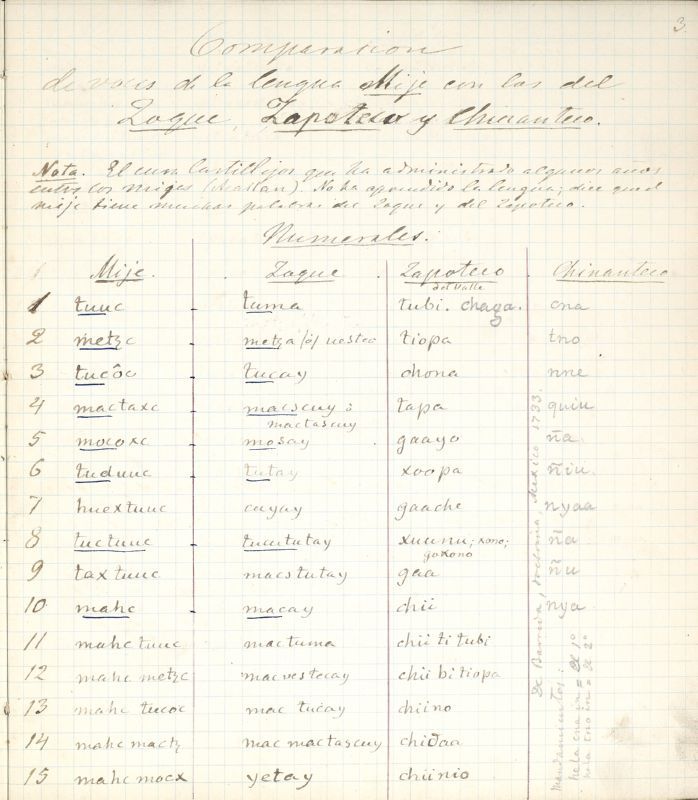 3.
Comparacion
de voces de la lengua Mije con las del
Zoque, Zapoteco y Chinanteco.
Nota. El cura Castillejos que ha administrado algunos años
entre los mijes. No ha aprendido la lengua; dice que el
mije tiene muchas palabras del Zoque y del Zapoteco.
Numerales.
Mije. Zoque Zapoteco Chinanteco
del Valle
1 tuuc - tuma tubi. chaga. cna
2 metzc - metza /ó/ vesteo tiopa tno
3 tucôc - tucay chona nne
4 mactaxc - macscuy : tapa quiu
mactascuy
5 mocoxc - mosay gaayo ña.
6 tuduuc - tutay xoopa ñiu.
7 huextuuc cuyay gaache nyaa
8 tuctuuc - tucututay xuunu; xono; ña.
goxono
9 taxtuuc macstutay gaa ñu
10 mahc - macay chii nya
11 mahc tuuc mactuma chii ti tubi
12 mahc metzc macvestecay chii bi tiopa
13 mahc tucoc mac tucay chiino
14 mahc mactz mac mactascuy chidaa
15 mahc mocx yetay chiinio
De Barreda, doctrina, Mexico 1733.
Mandamientos: